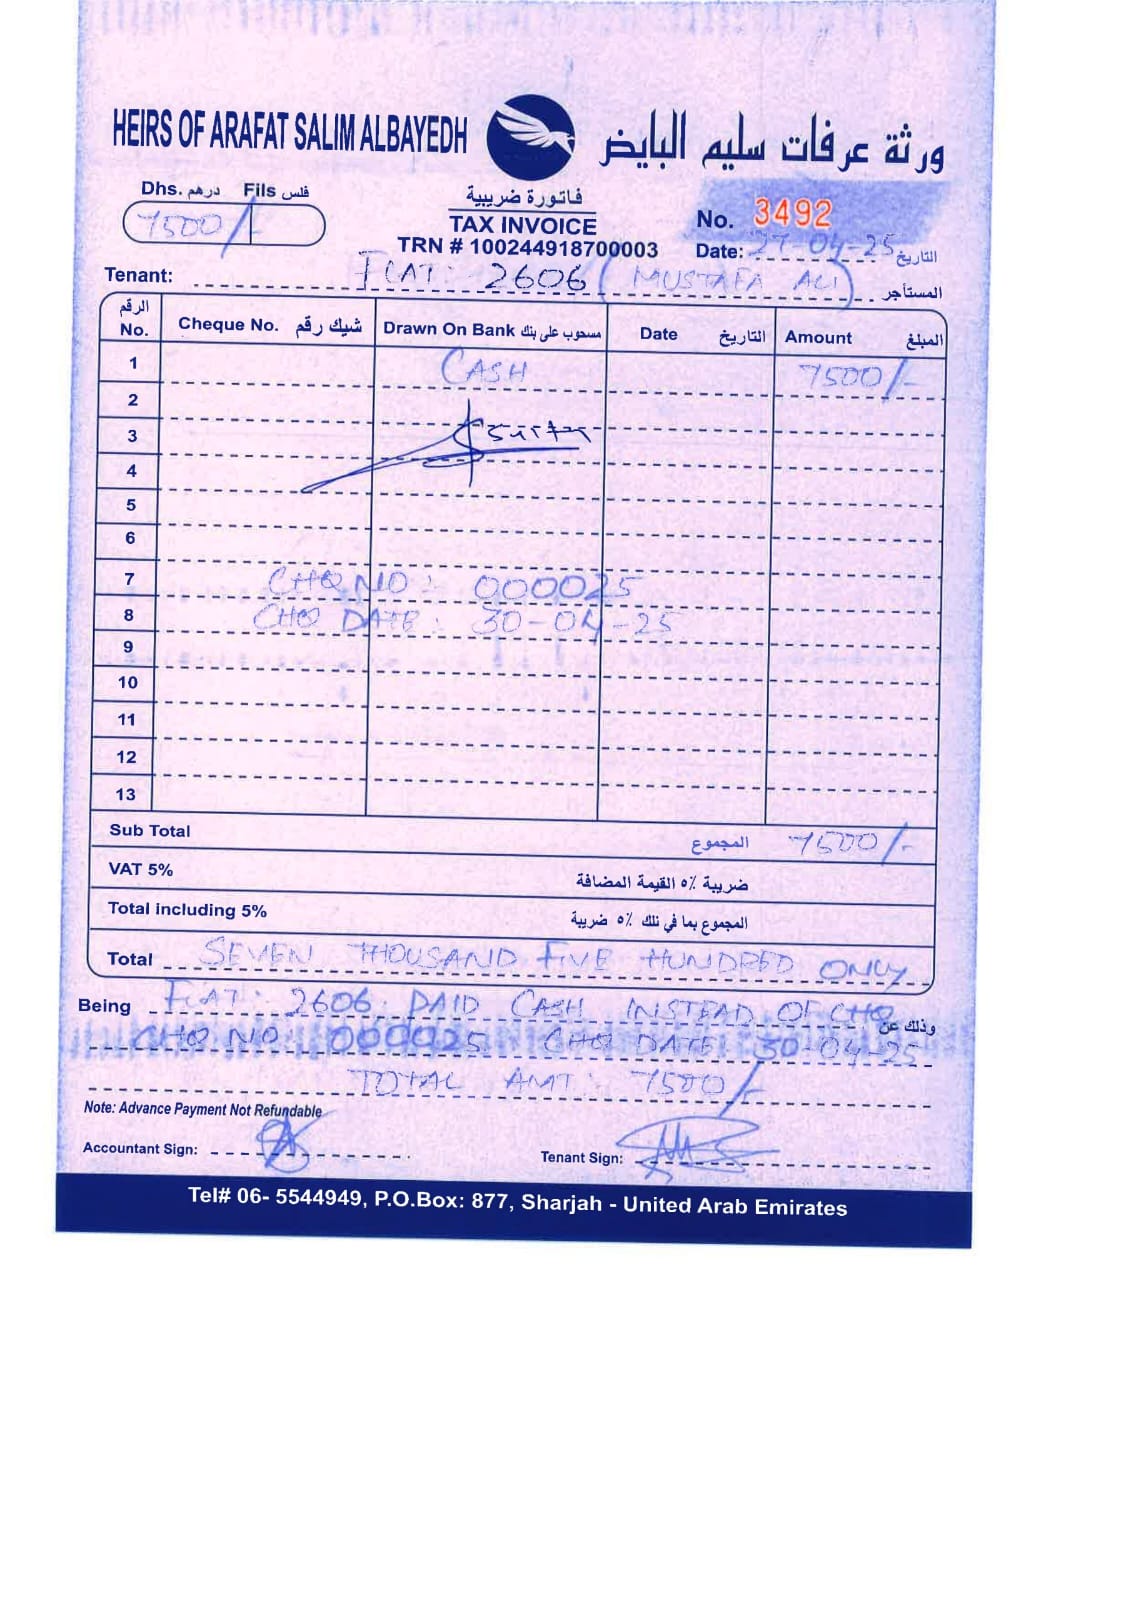 HEIRS OF ARAFAT SALIM ALBAYEDH ورثة عرفات سليم البايض
Dhs. درهم Fils فلس
7500/-
فاتورة ضريبية
TAX INVOICE
TRN # 100244918700003
No. 3492
Date: 27-04-25 التاريخ
Tenant: FLAT: 2606 (MUSTAFA ALI) المستأجر
الرقم No. Cheque No. شيك رقم Drawn On Bank مسحوب على بنك Date التاريخ Amount المبلغ
1 CASH 7500/-
2
3
4
5
6
7 CHQ NO: 000025
8 CHQ DATE: 30-04-25
9
10
11
12
13
Sub Total المجموع 7500/-
VAT 5% ضريبة ٥٪ القيمة المضافة
Total including 5% المجموع بما في ذلك ٥٪ ضريبة
Total SEVEN THOUSAND FIVE HUNDRED ONLY
Being FLAT: 2606. PAID CASH INSTEAD OF CHQ وذلك عن
CHQ NO: 000025 CHQ DATE: 30-04-25
TOTAL AMT: 7500/-
Note: Advance Payment Not Refundable
Accountant Sign: Tenant Sign:
Tel# 06- 5544949, P.O.Box: 877, Sharjah - United Arab Emirates